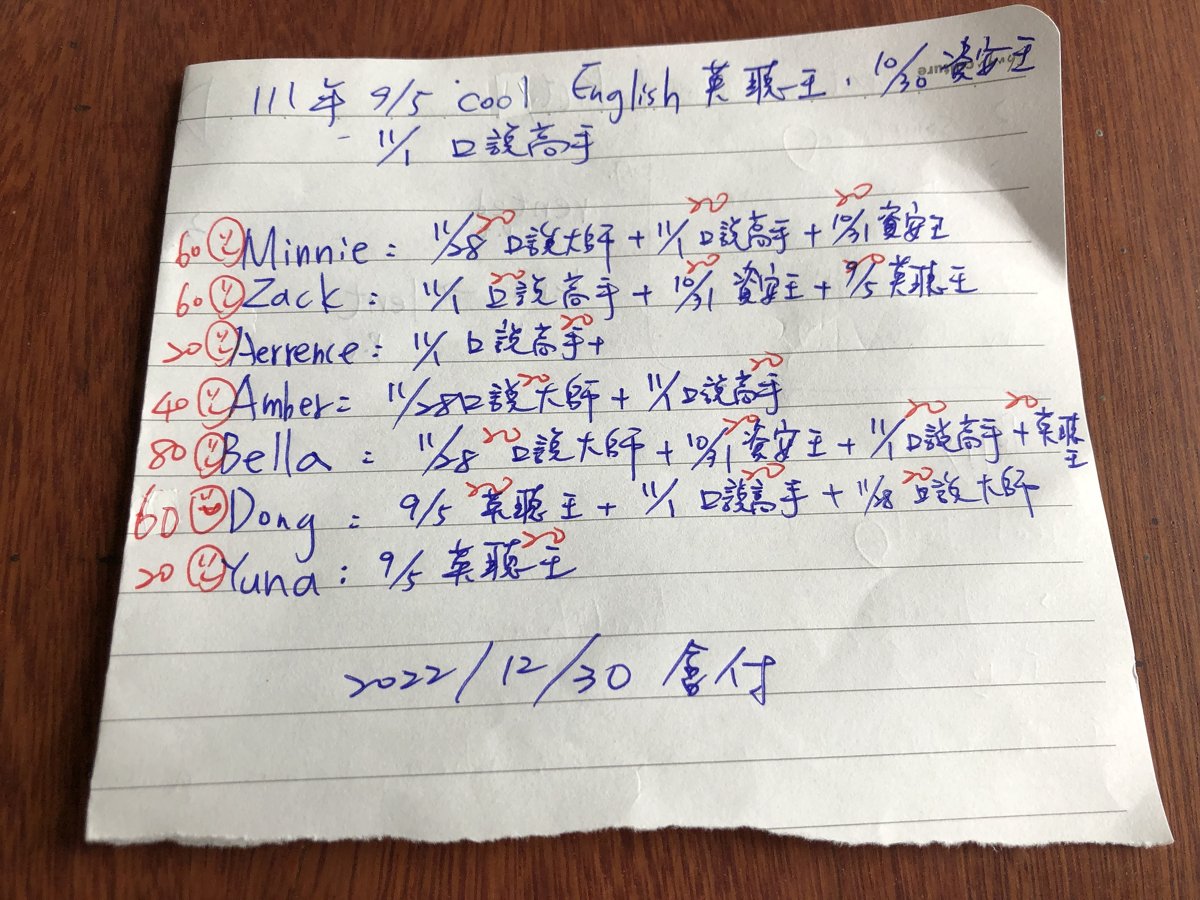 111年 9/5 cool English 英聽王、10/30 資安王
11/1 口說高手
60 Minnie: 11/28 20 口說大師 + 11/1 20 口說高手 + 10/31 20 資安王
60 Zack: 11/1 20 口說高手 + 10/31 20 資安王 + 9/5 20 英聽王
20 Terrence: 11/1 口說高手 20 +
40 Amber= 11/28 口說大師 20 + 11/1 口說高手 20
80 Bella: 11/28 20 口說大師 + 10/31 20 資安王 + 11/1 20 口說高手 + 20 英聽王
60 Dong: 9/5 20 英聽王 + 11/1 20 口說高手 + 11/28 20 口說大師
20 Yuna: 9/5 英聽王 20
2022/12/30 付